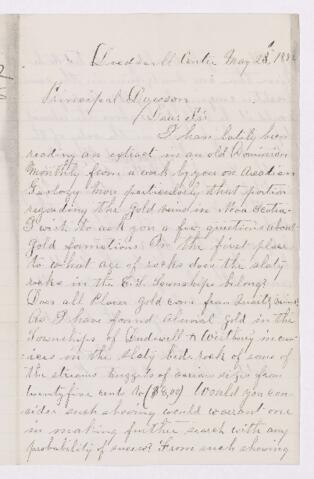 Dudswell Center May 28th 188
Principal Dawson
Dear Sir
I have latily been
reading an extract in an old Dominion
Monthly from a work by you on Acadian
Geology More particularly that portion
regarding the Gold vains in Nova Scotia
I wish to ask you a few questions about
Gold formations. In the first place
to what age of rocks does the slaty
rocks in the E. T. Townships belong?
Does all Placer gold come from Quartz vains?
As I have found alluvial gold in the
Townships of Dudswell & Westbury in
on the slaty bed rock of some of
the streams nuggets of various sizes from
twentyfive cents to ($8,00) Would you con
sider such showing would warrant one
in making further search with any
probability of success? From such showing